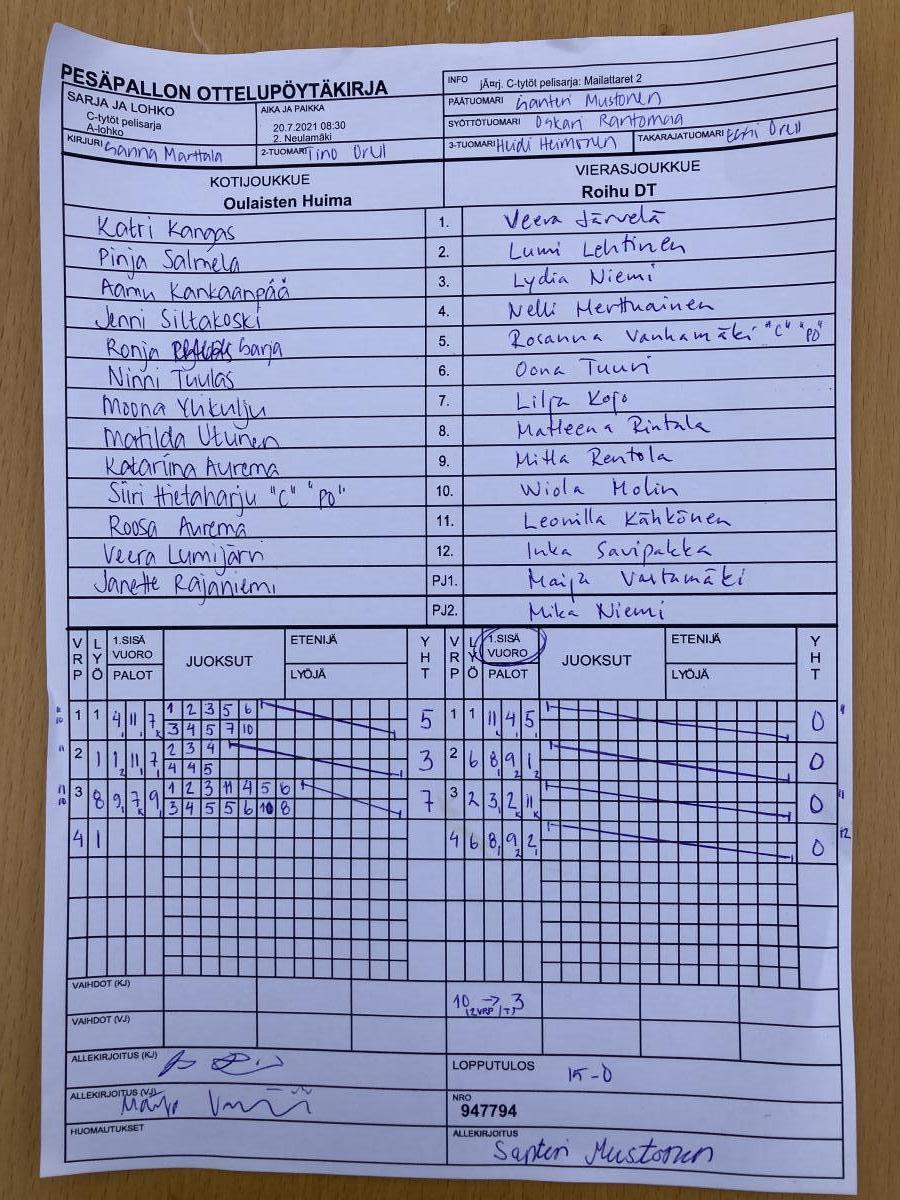 PESÄPALLON OTTELUPÖYTÄKIRJA
INFO jÃ¤rj. C-tytöt pelisarja: Mailattaret 2
SARJA JA LOHKO
C-tytöt pelisarja
A-lohko
AIKA JA PAIKKA
20.7.2021 08:30
2. Neulamäki
PÄÄTUOMARI Santeri Mustonen
SYÖTTÖTUOMARI Oskari Rantomaa
KIRJURI Sanna Marttala
2-TUOMARI Tino
3-TUOMARI Heidi Heimonen
TAKARAJATUOMARI
KOTIJOUKKUE
Oulaisten Huima
VIERASJOUKKUE
Roihu DT
Katri Kangas 1. Veera Järvelä
Pinja Salmela 2. Lumi Lehtinen
Aamu Kankaanpää 3. Lydia Niemi
Jenni Siltakoski 4. Nelli Merthuainen
Ronja Sarja 5. Rosanna Vanhamäki "C" "PO"
Ninni Tuulas 6. Oona Tuuri
Moona Ylikulju 7. Lilja Kojo
Matilda Utunen 8. Matleena Rintala
Katariina Aurema 9. Milla Rentola
Siiri Hietaharju "C" "PO" 10. Wiola Molin
Roosa Aurema 11. Leonilla Kähkönen
Veera Lumijärvi 12. Inka Savipakka
Janette Rajaniemi PJ1. Maija Vastamäki
PJ2. Mika Niemi
VRP LYÖ 1.SISÄ VUORO PALOT JUOKSUT ETENIJÄ LYÖJÄ YHT VRP LYÖ 1.SISÄ VUORO PALOT JUOKSUT ETENIJÄ LYÖJÄ YHT
1 1 4 11 7 1 2 3 5 6 5 1 1 11 4 5 0
3 4 5 7 10
2 1 1 11 7 2 3 4 3 2 6 8 9 1 0
4 4 5
3 8 9 7 9 1 2 3 11 4 5 6 7 3 2 3 2 11 0
3 4 5 5 6 10 8
4 1 4 6 8 9 2 0 12
VAIHDOT (KJ) 10 → 3
2VRP
VAIHDOT (VJ)
ALLEKIRJOITUS (KJ)
LOPPUTULOS 15-0
ALLEKIRJOITUS (VJ)
NRO
947794
HUOMAUTUKSET
ALLEKIRJOITUS
Santeri Mustonen